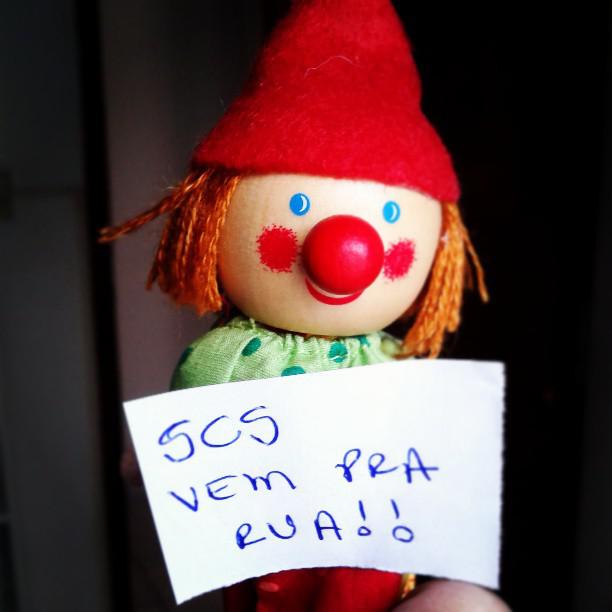 SCS
VEM PRA
RUA!!